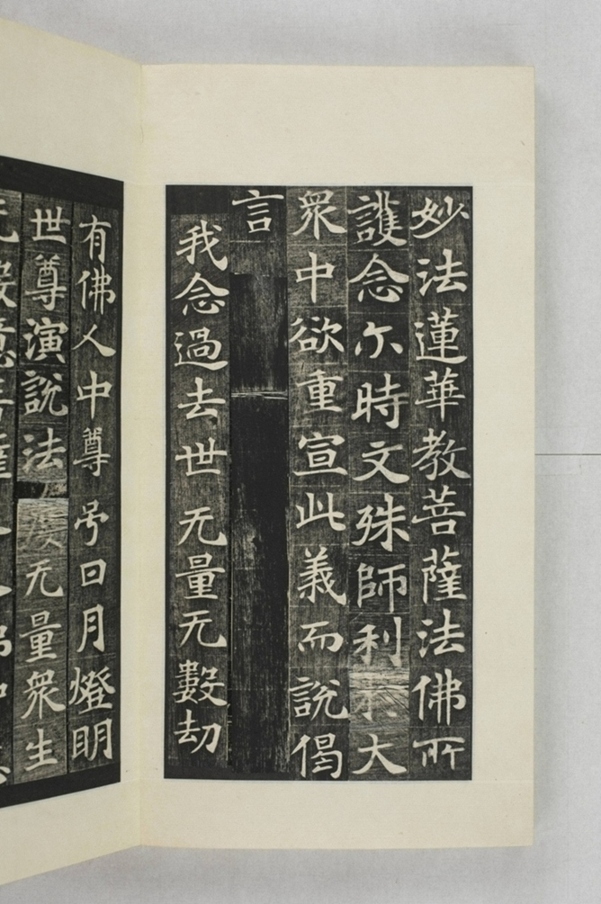 妙法蓮華教菩薩法佛所
護念尒時文殊師利大
衆中欲重宣此義而說偈
言
我念過去世无量无數劫
有佛人中尊号日月燈明
世尊演說法无量衆生